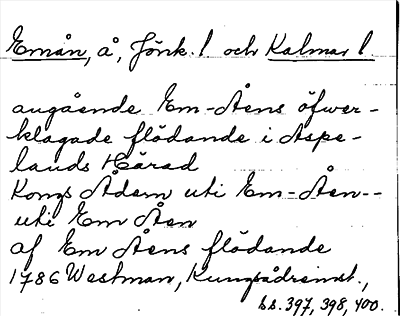 Emån, å, Jönk. l. och Kalmar l.
angående Em-Åens öfwer-
klagade flödande i Aspe-
lands Härad
Kongs Ådern uti Em-Åen--
uti Em Åen
af Em Åens flödande
1786 Westman, Kungsådreinst.,
bs. 397, 398, 400.